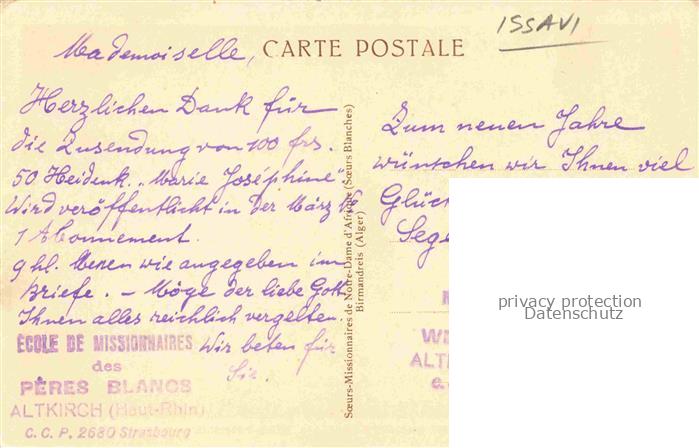 ISSAVI
Mademoiselle, CARTE POSTALE
Herzlichen Dank für
die Zusendung von 100 frs.
50 Heidenk. „Marie Joséphine"
Wird veröffentlicht in der März
1 Abonnement.
9 hl. Messen wie angegeben im
Briefe. – Möge der liebe Gott
Ihnen alles reichlich vergelten.
Wir beten für
Sie.
ÉCOLE DE MISSIONNAIRES
des
PÈRES BLANCS
ALTKIRCH (Haut-Rhin)
C. C. P. 2680 Strasbourg
Sœurs-Missionnaires de Notre-Dame d'Afrique (Sœurs Blanches)
Birmandreis (Alger)
Zum neuen Jahre
wünschen wir Ihnen viel
Glück
Sege
privacy protection
Datenschutz
ALT
C.